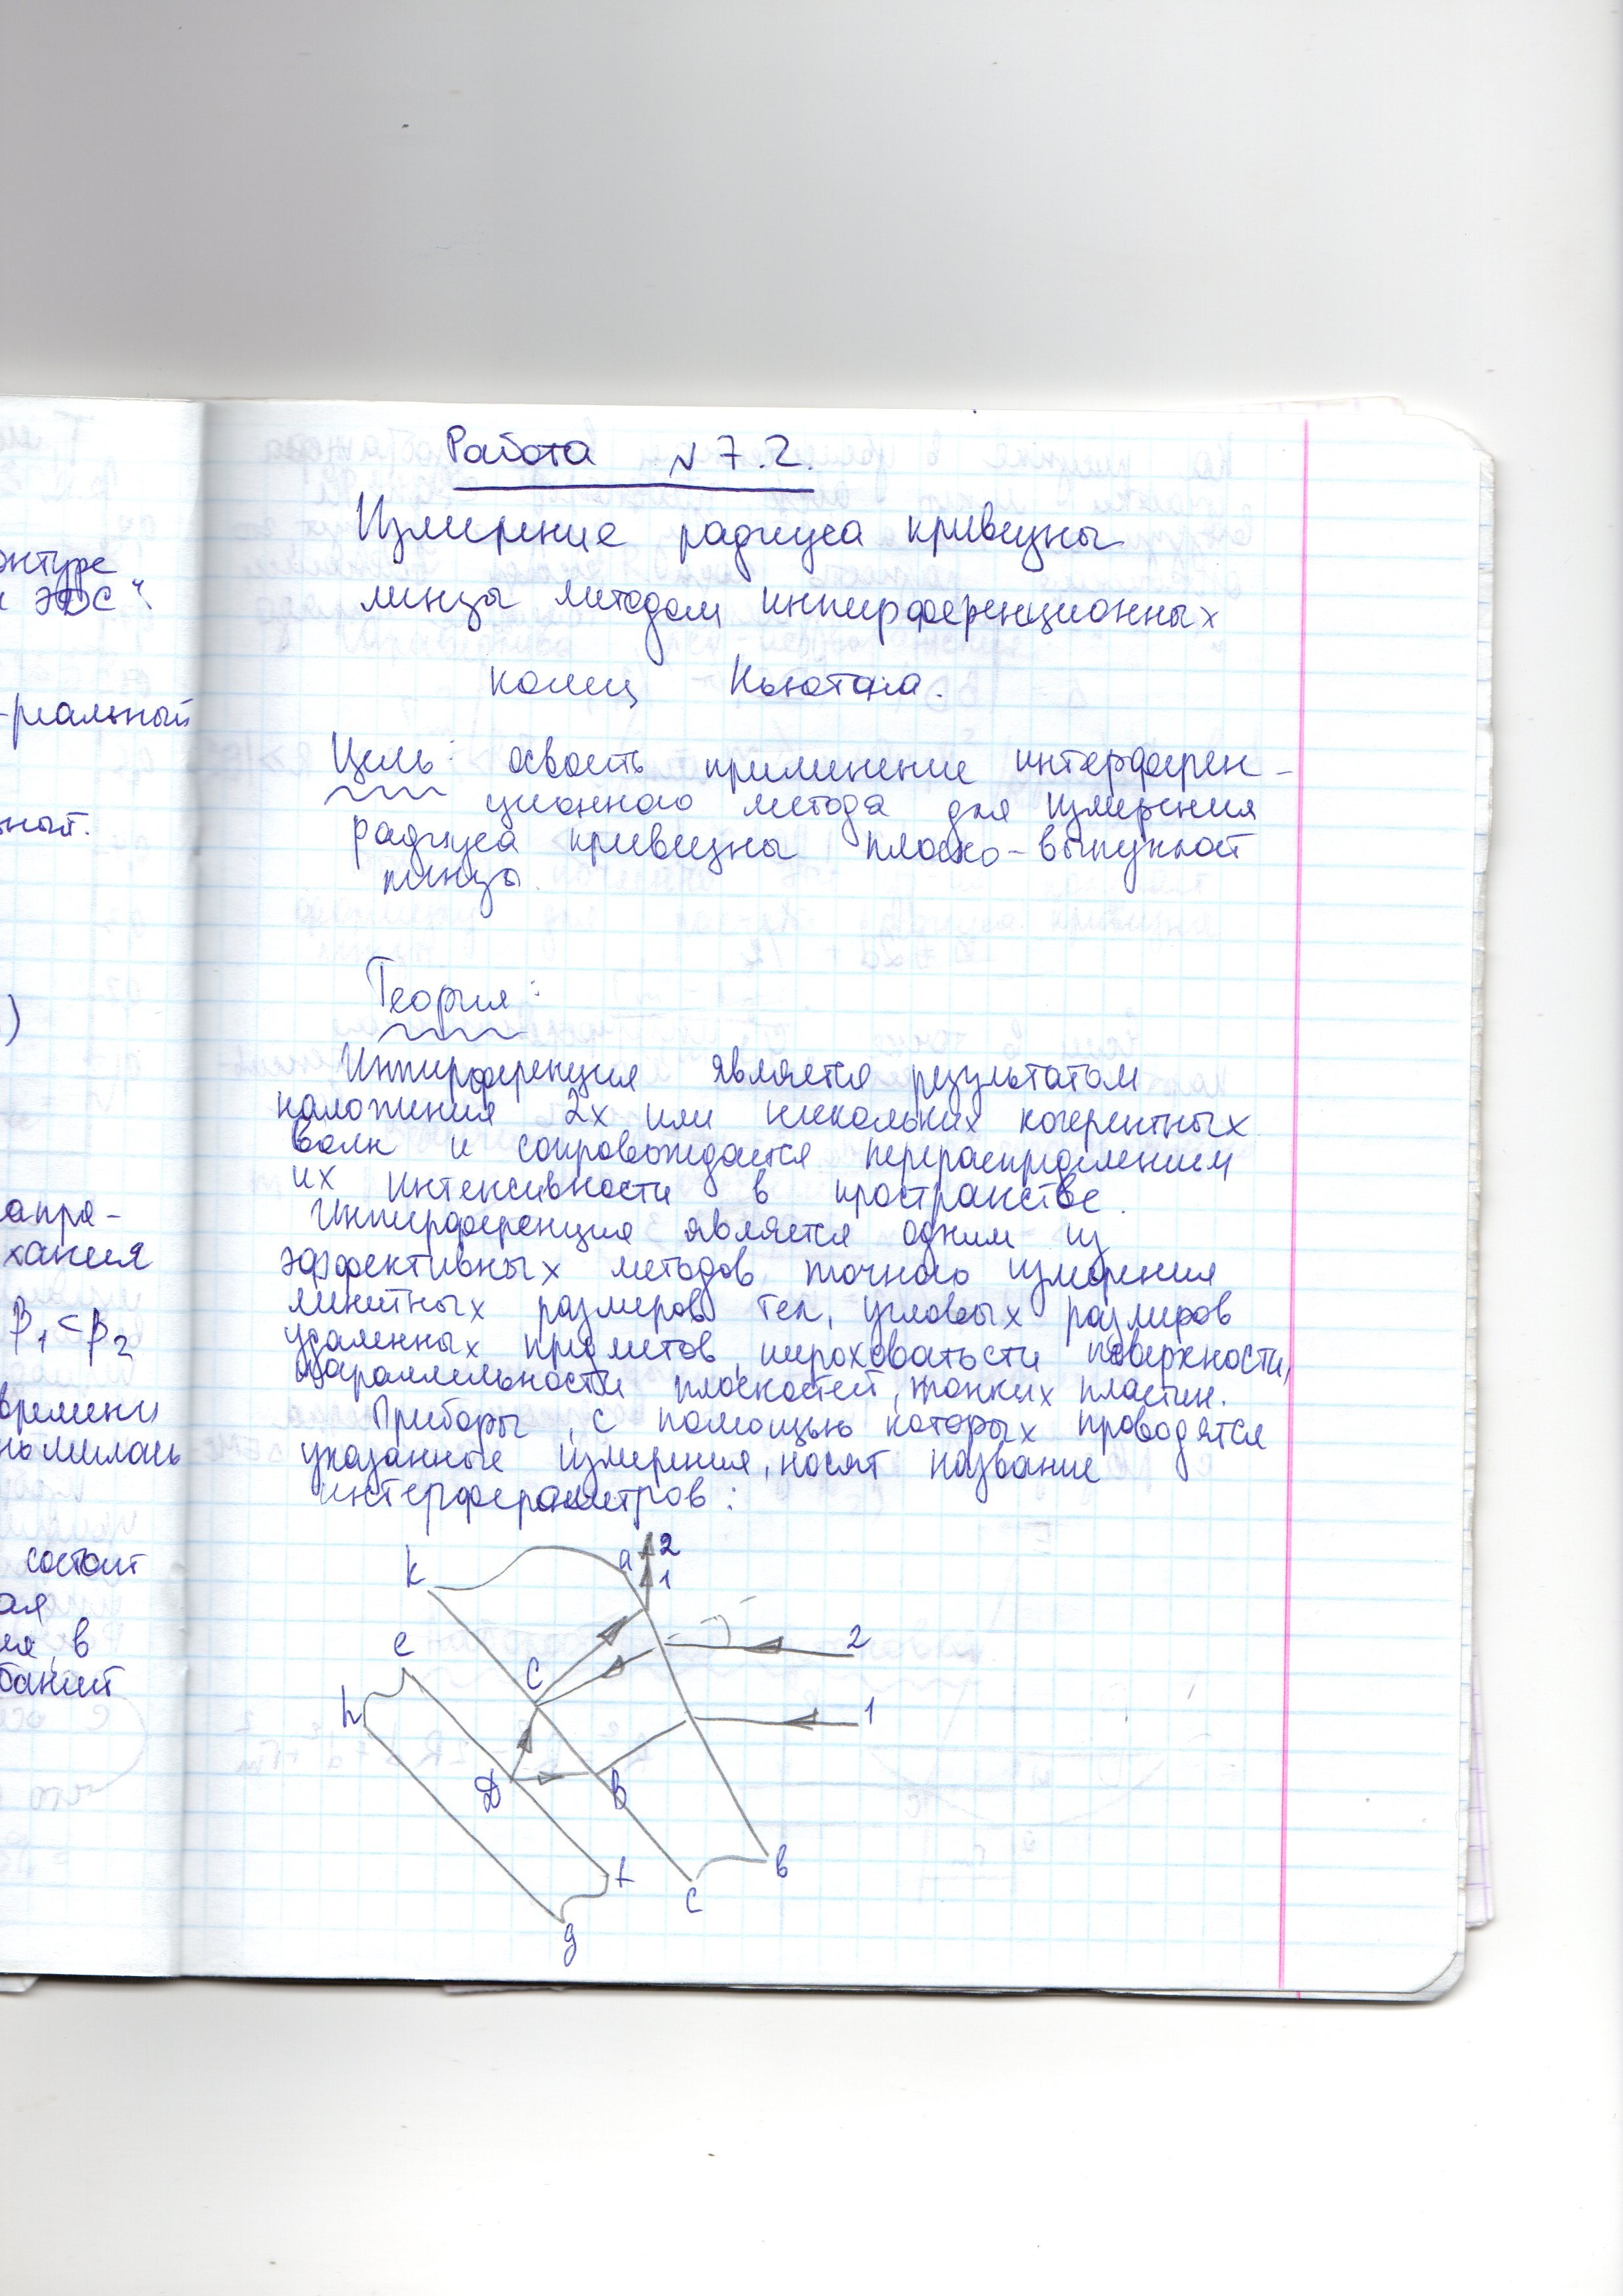 Работа № 7.2.
Измерение радиуса кривизны
линзы методом интерференционных
колец Ньютона.
Цель: освоить применение интерферен-
ционного метода для измерения
радиуса кривизны плоско-выпуклой
линзы.
Теория:
Интерференция является результатом
наложения 2х или нескольких когерентных
волн и сопровождается перераспределением
их интенсивности в пространстве.
Интерференция является одним из
эффективных методов точного измерения
линейных размеров тел, угловых размеров
удаленных предметов, шероховатости поверхности,
параллельности плоскостей, тонких пластин.
Приборы, с помощью которых проводятся
указанные измерения, носят название
интерферометров:
k
a
2
1
e
C
2
h
1
D
B
t
C
в
g
онтуре
ЭДС"
-реальный
ный.
)
апра-
хания
β₁<β₂
времени
состоит
ая
ия в